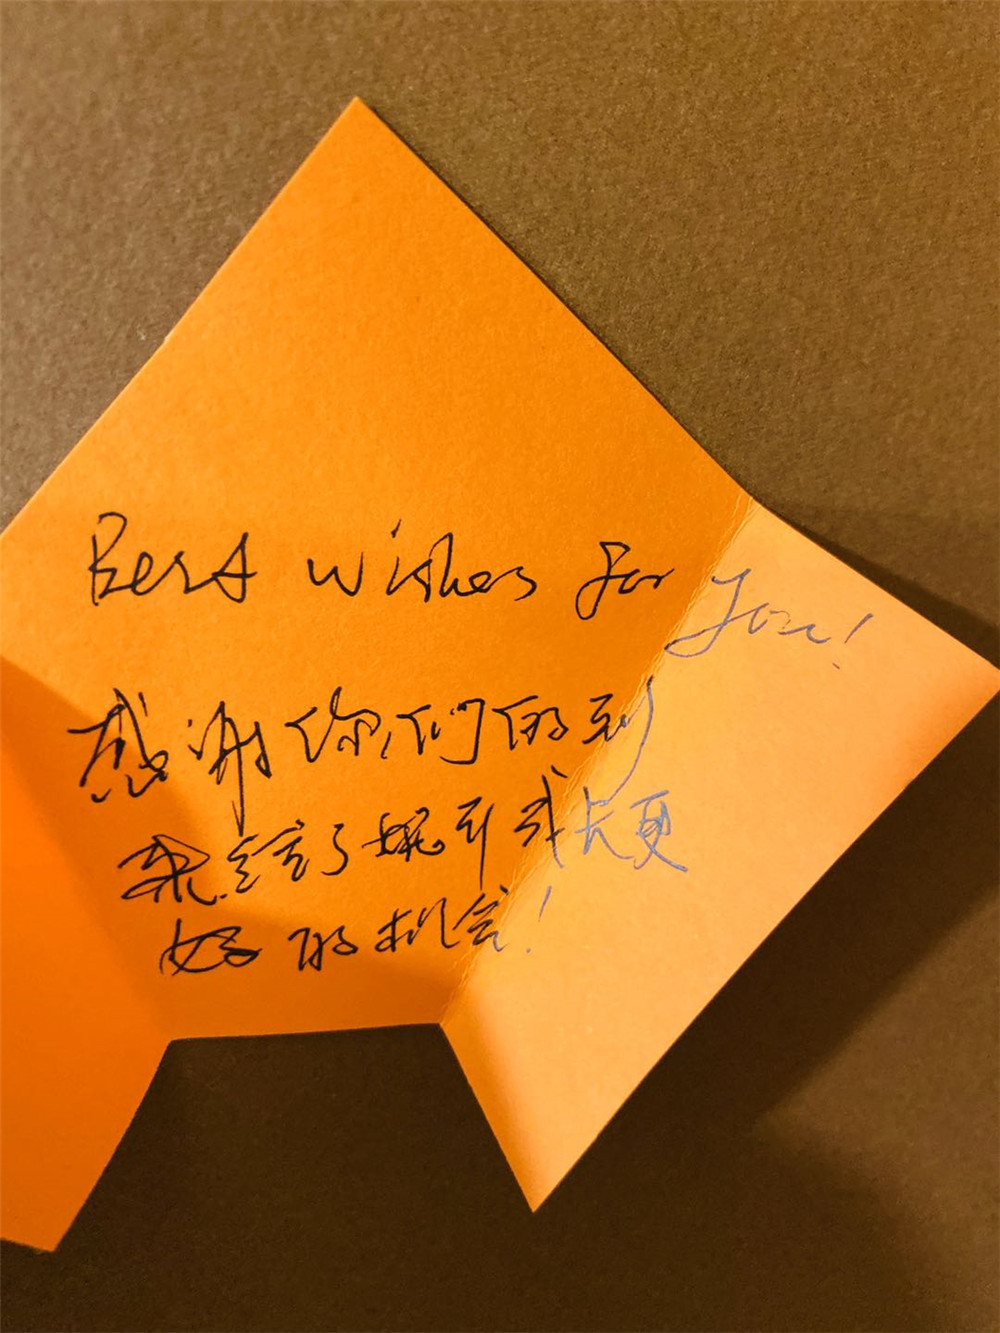 Best wishes for you!
感谢你们的到
来 了 长更
好的机会!